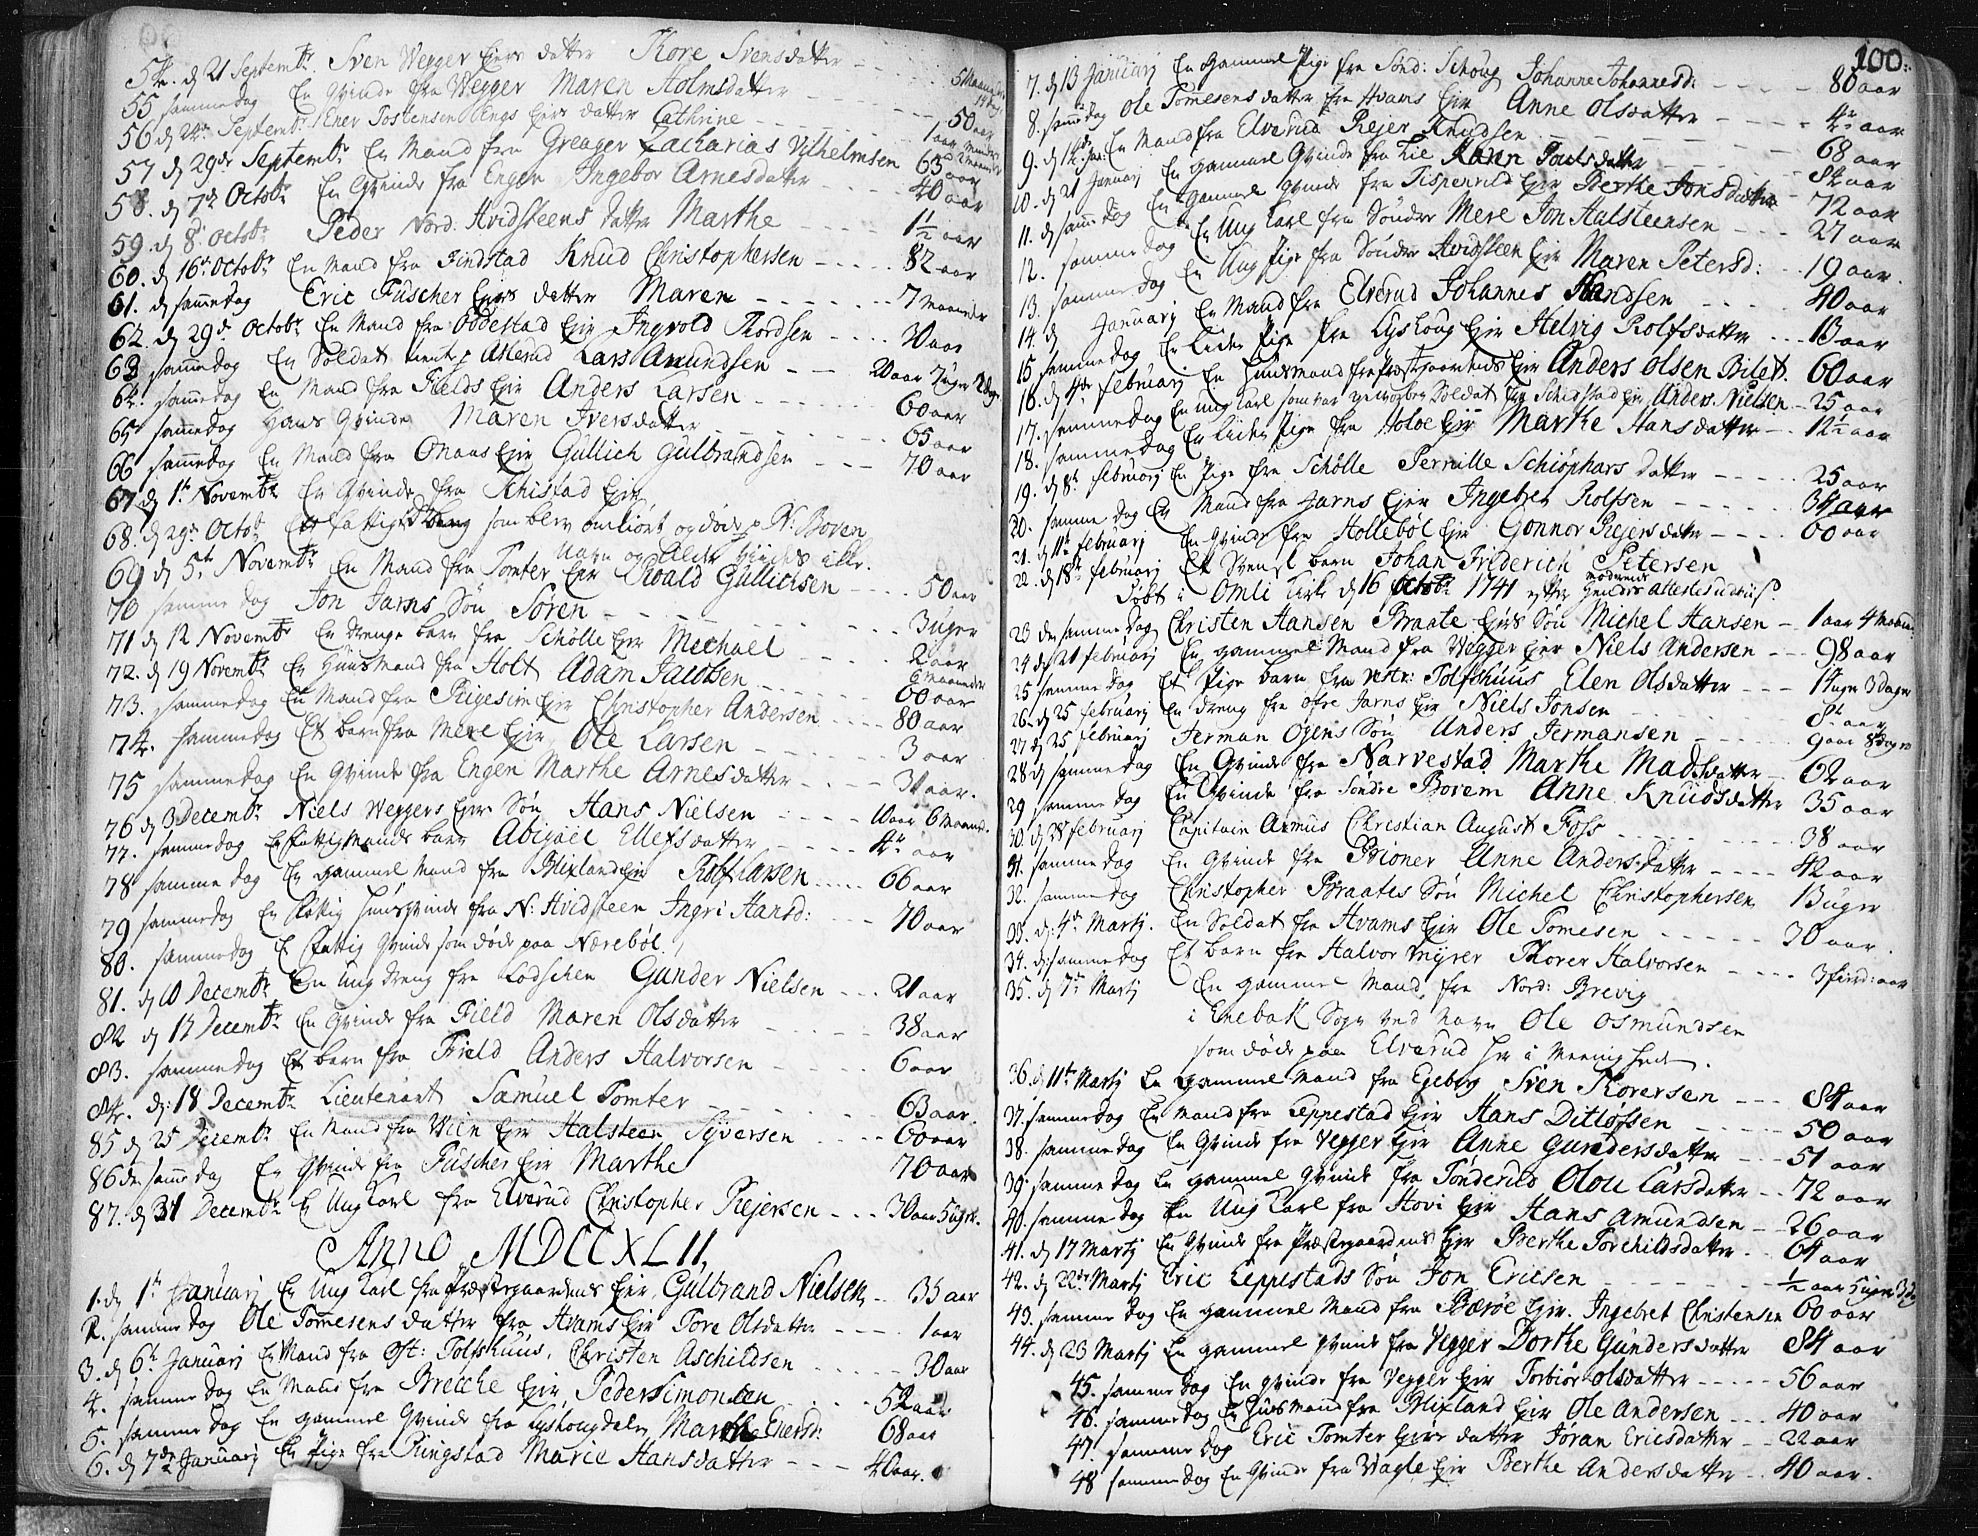 54. d 21 Septembr Sven Wegger Ejers datter Thore Svensdatter - - 5 Maaneder 14 dag
55 sammedag En Qvinde fra Wegger Maren Holmsdatter - - - 50 aar
56 d 24 Septembr Ener Tostensen Engs Ejers datter Cathrine - - - 1 aar
57 d 29de Septembr En Mand fra Greager Zacharias Vilhelmsen 63 aar
58. d 7de Octobr En Qvinde fra Engen Ingebor Arnesdatter - - 40 aar
59. d 8 Octobr Peder Nord: Hvidsteens datter Marthe - - - 1½ aar
60. d 16de Octobr En Mand fra Findstad Knud Christophersen - - - 82 aar
61. d sammedag Eric Fuscher Ejers datter Maren - - - 7 maaneder
62. d 29de Octobr En Mand fra Oddestad Ejer Ingvold Thordsen - - - 30 aar
63 sammedag En Soldat Lars Amundsen - - 20 aar 7 uger 2 dage
64. sammedag En Mand fra Fields Ejer Anders Larsen - - - 60 aar
65 sammedag Hans Qvinde Maren Iversdatter - - - 65 aar
66 sammedag En Mand fra Onaas Ejer Gullich Gulbrandsen - - - 70 aar
67 d 1te Novembr En Qvinde fra Schistad Ejer
68. d 29de Octobr Et fattigt barn som blev omkiört og döde p N: Boven
Navn og Alder vides icke.
69 d 5te Novembr En Mand fra Tomter Ejer Roald Gullichsen - - - 50 aar
70 samme dag Jon Jarns Sön Sören - - - 3 uger
71 d 12 Novembr En drenge barn fra Schölle Ejer Mechael - - - 2 aar 6 maaneder
72. d 19 Novembr En Huusmand fra Holt Adam Jacobsen - - - 60 aar
73. sammedag En Mand fra Rigesim Ejer Christopher Andersen - - - 80 aar
74. sammedag Et barn fra Mere Ejer Ole Larsen - - - 3 aar
75 sammedag En Qvinde fra Engen Marthe Arnesdatter - - - 31 aar.
76 d 3 Decembr Niels Weggers Ejers Sön Hans Nielsen - - - 10 aar 6 maaned.
77. sammedag En fattig Mands barn Abigael Ellefsdatter - - - 4 aar
78 samme dag En gammel Mand fra Blixland Ejer Rolf Larsen - - - 66 aar
79 sammedag En fattig Huusqvinde fra N: Hvidsteen Ingri Hansd: - - - 70 aar
80. sammedag En fattig Qvinde som döde paa Næreböl.
81. d 10 Decembr En Ung dreng fra Lodschen Gunder Nielsen - - - 21 aar
82 d 17 Decembr En Qvinde fra Field Maren Olsdatter - - - 38 aar
83. sammedag Et barn fra Field Anders Halvorsen - - - 6 aar
84. d: 18 Decembr Lieutenant Samuel Tomter - - - 63 aar
85 d 25 Decembr En Mand fra Wien Ejer Halsteen Syversen - - - 60 aar
86 den samme dag En Qvinde fra Fuscher Ejer Marthe 70 aar
87. d 31 Decembr En Ung Karl fra Elverud Christopher Rejersen - - - 30 aar 5 uger.
Anno MDCCXLII,
1. d 1te Januarj En Ung Karl fra Præstegaardens Ejer Gulbrand Nielsen - 35 aar
2. samme dag Ole Tomesens datter fra Hvams Ejer Tore Olsdatter - - - 1 aar
3. d 6te Januarj En Mand fra Öst: Tolfshuus, Christen Aschildsen - - - 30 aar
4. samme dag En Mand fra Breiche Ejer Peder Simonsen - - - 52 aar
5. samme dag En gammel Qvinde fra Lyshougdalen Marthe Enersd: 68 aar
6. d 7de Januarj En Pige fra Ringstad Marie Hansdatter - - - 40 aar.
100.
7. d 13 Januarj En gammel Pige fra Sönd: Schoug Johanne Johannesd: - - - 80 aar
8. samme dag Ole Tomesens datter fra Hvams Ejer Anne Olsdatter - - - 4 aar
9. d 14de Jan: En Mand fra Elverud Rejer Knudsen - - - 68 aar
10. d 21 Januarj En gammel Qvinde fra Lie Karen Poulsdatter - - - 84 aar
11. d samme dag En gammel Qvinde fra Tispenrud Ejer Berthe Jonsdatter - 72 aar
12. samme dag En Ung Karl fra Söndre Mere Jon Halsteensen - - - 27 aar
13. samme dag En Ung Pige fra Söndre Hvidsteen Ejer Maren Petersd: - - 19 aar.
14. d Januarj En Mand fra Elverud Johannes Randsen - - - 40 aar
15 samme dag En Liden Pige fra Lyshoug Ejer Helvig Rolfsdatter - - - 13 aar
16. d 4de Februarj En Huusmand fra Præstegaardens Ejer Anders Olsen Bilet. 60 aar
17. sammedag En ung Karl som var Soldat fra Schidstad Ejer Anders Nielsen - 25 aar
18. sammedag En Liden Pige fra Holoe Ejer Marthe Hansdatter - - 12½ aar
19. d 8te Februarj En Pige fra Schölle Pernille Schiöphars datter - - - 25 aar
20. samme dag En Mand fra Jarns Ejer Ingebret Rolfsen - - - 34 aar
21. d 11te Februarj En Qvinde fra Holleböl Ejer Gonnor Rejersdatter - - - 60 aar
22. d 18de Februarj Et Svensk barn Johan Friderich Petersen
Döbt i Omli Kirke d 16 Octobr 1741 efter Attestes udviis.
23 den samme dag Christen Hansen Braate Ejers Sön Michel Hansen - 1 aar 4 maan:
24 d 21 Februarj En gammel Mand fra Wegger Ejer Niels Andersen - - - 98 aar
25 samme dag Et Pige barn fra vestr: Tolfshuus Elen Olsdatter - - - 14 uger 3 dager
26. d 25 Februarj En dreng fra öfre Jarns Ejer Niels Jonsen - - - 8½ aar
27 d 25 Februarj Herman Ogens Sön Anders Hermansen - - - 9 aar 8 dager
28 d samme dag En Qvinde fra Narvestad Marthe Madsdatter - 62 aar
29 samme dag En Qvinde fra Söndre Borem Anne Knudsdatter 35 aar
30. d 28 Februarj Capitain Asmus Christian August Foss - - - 38 aar
31. samme dag En Qvinde fra Brioner Anne Andersdatter - - - 42 aar
32. samme dag Christopher Braates Sön Michel Christophersen 13 uger
33. d: 4de Martj. En Soldat fra Hvams Ejer Ole Tomesen - - - 30 aar.
34. d: sammedag Et barn fra Halvor Myrer Thorer Halvorsen - - - 3 fierd: aar
35. d 7de Martj En gammel Mand fra Nord: Brevig
i Enebak Sogn ved Navn Ole Osmundsen
som döde paa Elverud her i Meenigheden.
36. d 11te Martj En gammel Mand fra Egeberg Sven Thorersen - - - 84 aar
37. samme dag En Mand fra Teppestad Ejer Hans Ditlofsen - - - 50 aar
38. samme dag En Qvinde fra Vegger Ejer Anne Gundersdatter - - - 51 aar
39. samme dag En gammel Qvinde fra Tonderud Olou Larsdatter - - 72 aar
40. samme dag En Ung Karl fra Hovi Ejer Hans Amundsen - 26 aar
41. d 17 Martj En Qvinde fra Præstegaardens Ejer Berthe Torchildsdatter - - 64 aar
42. d 22de Martj Eric Teppestads Sön Jon Ericsen - - - ½ aar 5 uger 3 dag
43. samme dag En gammel Mand fra Beröe Ejer. Ingebret Christensen 60 aar
44. d 23 Martj En gammel Qvinde fra Vegger Dorthe Gundersdatter 84 aar
45. samme dag En Qvinde fra Vegger Ejer Torbiör Olsdatter - - - 56 aar
46. samme dag En Huusmand fra Blixland Ejer Ole Andersen - - - 40 aar
47. samme dag Eric Tomter Ejers datter Joran Ericsdatter - - 22 aar
48 samme dag En Qvinde fra Vagle Ejer Berthe Andersdatter - - 40 aar.